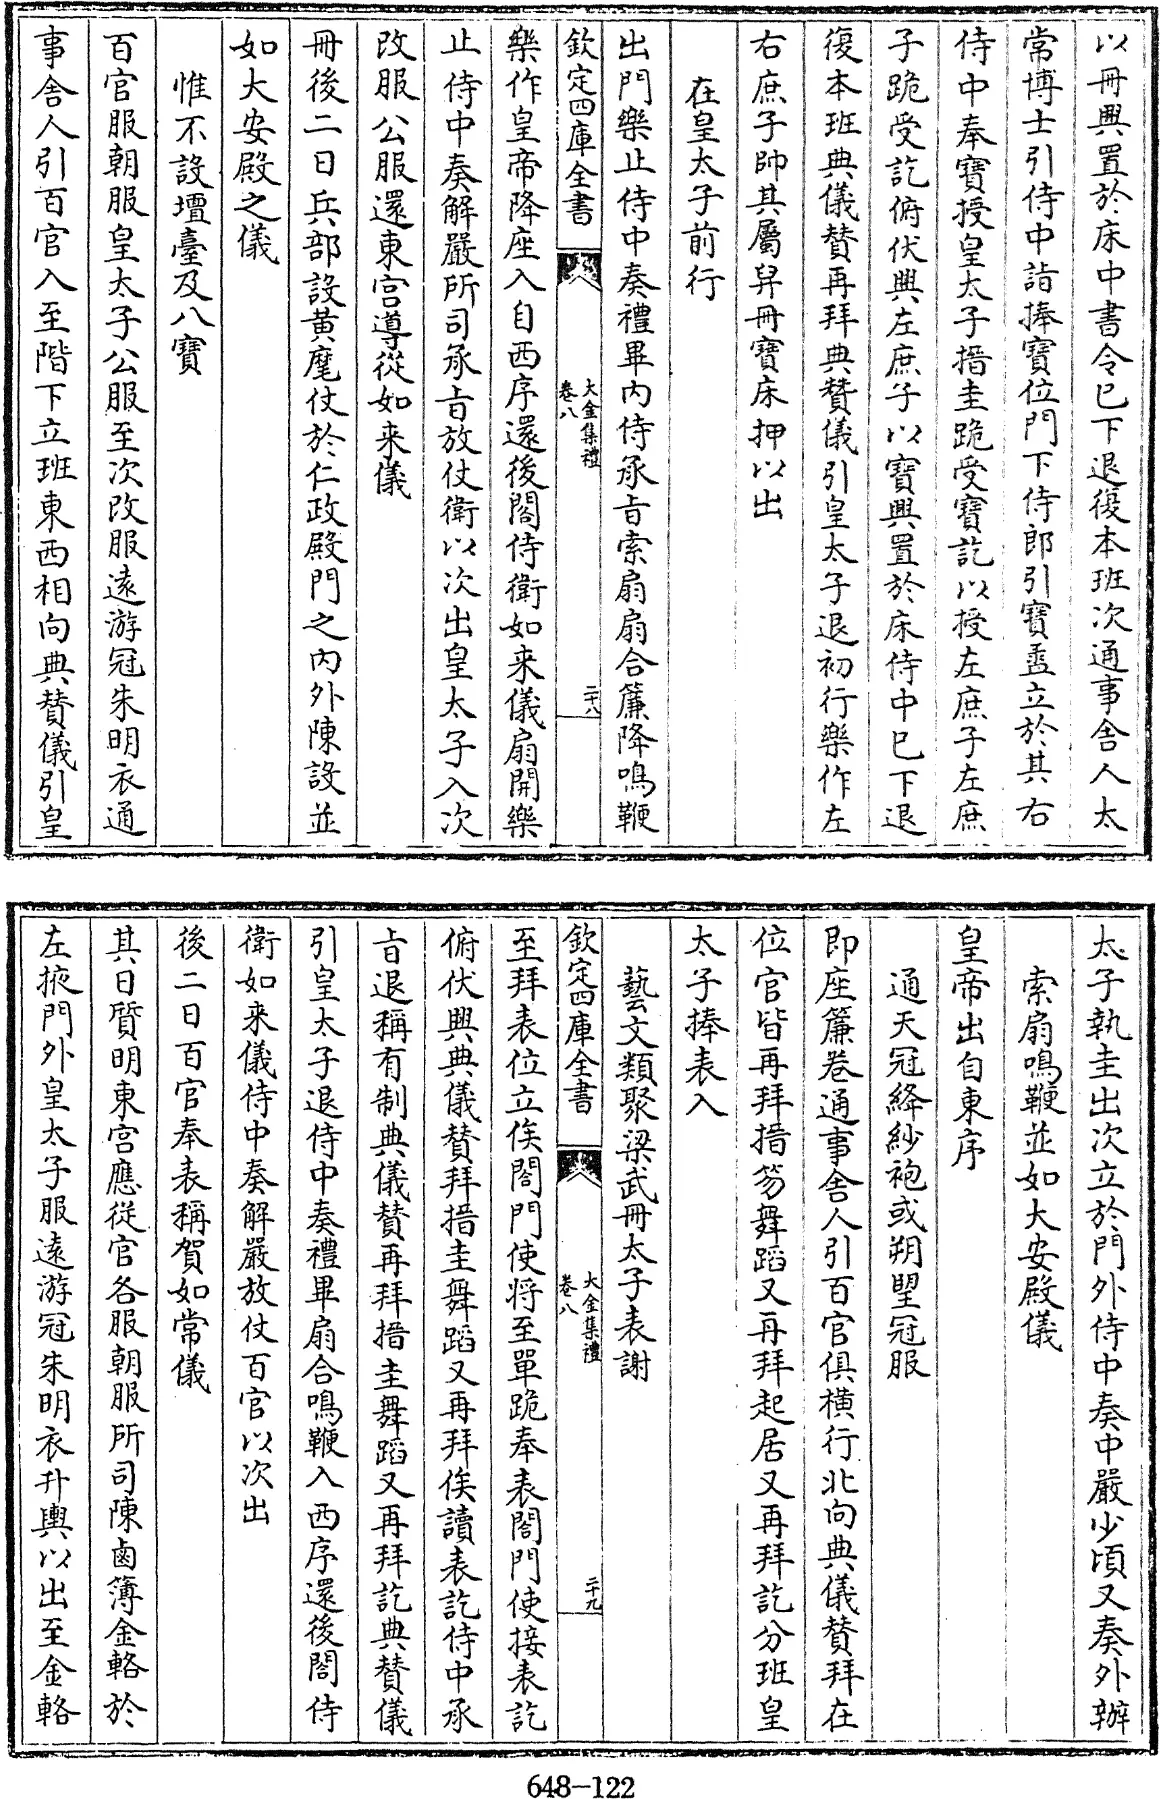 以冊興置於床中書令已下退復本班次通事舍人太
常博士引侍中詣捧寶位門下侍郎引寶盝立於其右
侍中奉寶授皇太子搢圭跪受寶訖以授左庶子左庶
子跪受訖俯伏興左庶子以寶興置於床侍中已下退
復本班典儀贊再拜典贊儀引皇太子退初行樂作左
右庶子帥其屬舁冊寶床押以出
在皇太子前行
出門樂止侍中奏禮畢内侍承㫖索扇扇合簾降鳴鞭
欽定四庫全書
大金集禮
卷八
二十八
樂作皇帝降座入自西序還後閤侍衛如来儀扇開樂
止侍中奏解嚴所司承㫖放仗衛以次出皇太子入次
改服公服還東宫導從如来儀
冊後二日兵部設黄麾仗於仁政殿門之内外陳設並
如大安殿之儀
惟不設壇臺及八寶
百官服朝服皇太子公服至次改服逺游冠朱明衣通
事舍人引百官入至階下立班東西相向典贊儀引皇
太子執圭出次立於門外侍中奏中嚴少頃又奏外辦
索扇鳴鞭並如大安殿儀
皇帝出自東序
通天冠絳紗袍或朔望冠服
即座簾卷通事舍人引百官俱横行北向典儀贊拜在
位官皆再拜搢笏舞蹈又再拜起居又再拜訖分班皇
太子捧表入
藝文類聚梁武冊太子表謝
欽定四庫全書
大金集禮
卷八
二十九
至拜表位立俟閤門使将至單跪奉表閤門使接表訖
俯伏興典儀贊拜搢圭舞蹈又再拜俟讀表訖侍中承
㫖退稱有制典儀贊再拜搢圭舞蹈又再拜訖典贊儀
引皇太子退侍中奏禮畢扇合鳴鞭入西序還後閤侍
衛如来儀侍中奏解嚴放仗百官以次出
後二日百官奉表稱賀如常儀
其日質明東宫應從官各服朝服所司陳鹵簿金輅於
左掖門外皇太子服逺游冠朱明衣升輿以出至金輅
648-122